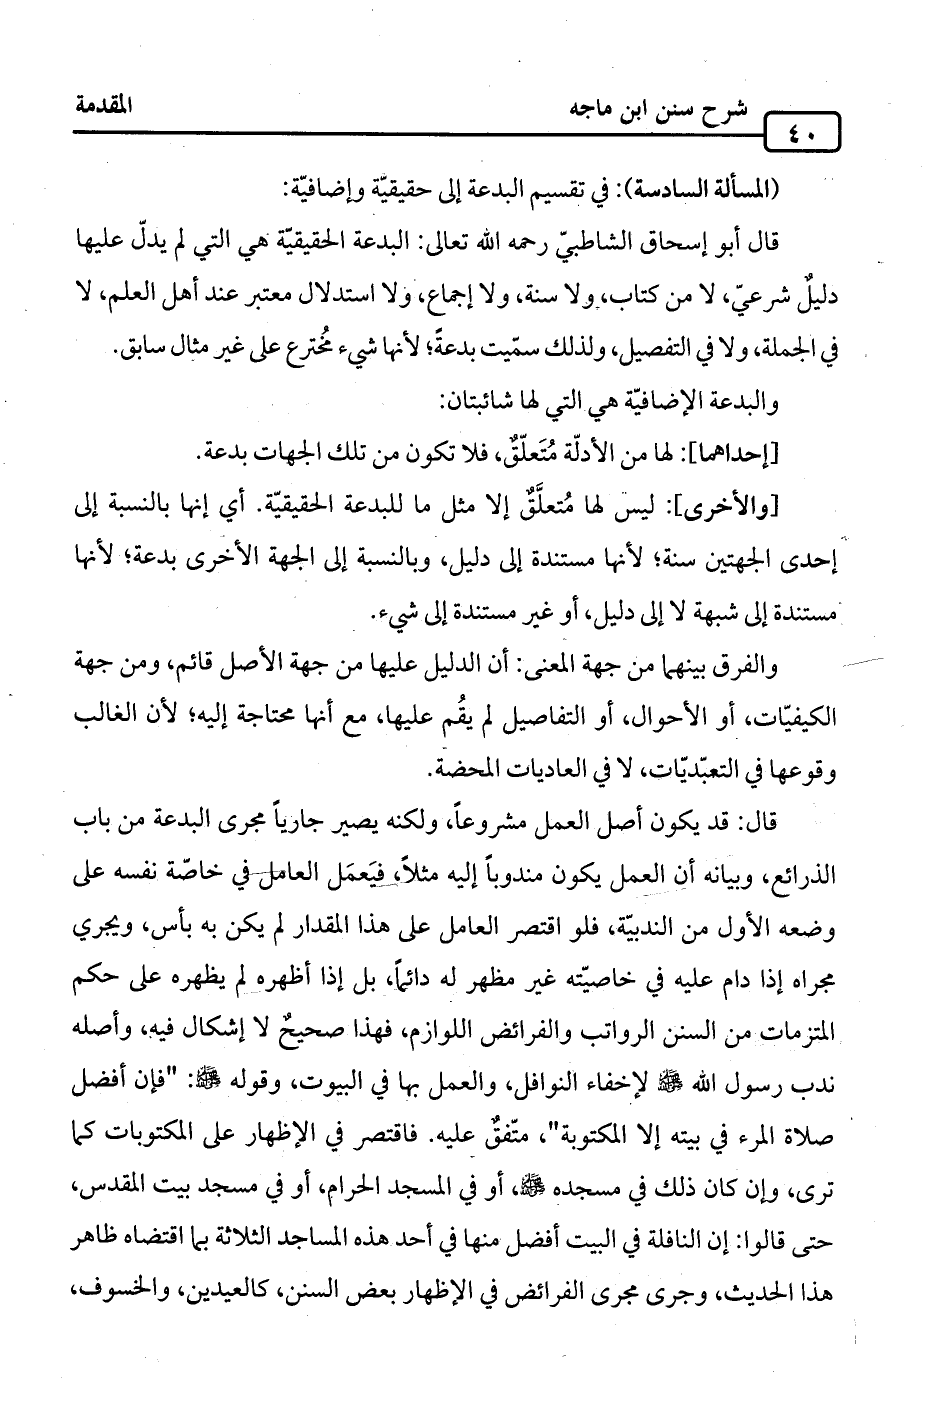 شرح سنن ابن ماجه
المقدمة
٤٠
(المسألة السادسة): في تقسيم البدعة إلى حقيقيّة وإضافيّة:
قال أبو إسحاق الشاطبيّ رحمه الله تعالى: البدعة الحقيقيّة هي التي لم يدلّ عليها
دليلٌ شرعيّ، لا من كتاب، ولا سنة، ولا إجماع، ولا استدلال معتبر عند أهل العلم، لا
في الجملة، ولا في التفصيل، ولذلك سمّيت بدعةً؛ لأنها شيء مُخترع على غير مثال سابق.
والبدعة الإضافيّة هي التي لها شائبتان:
[إحداهما]: لها من الأدلّة مُتَعلّقٌ، فلا تكون من تلك الجهات بدعة.
[والأخرى]: ليس لها مُتعلَّقٌ إلا مثل ما للبدعة الحقيقيّة. أي إنها بالنسبة إلى
إحدى الجهتين سنة؛ لأنها مستندة إلى دليل، وبالنسبة إلى الجهة الأخرى بدعة؛ لأنها
مستندة إلى شبهة لا إلى دليل، أو غير مستندة إلى شيء.
والفرق بينهما من جهة المعنى: أن الدليل عليها من جهة الأصل قائم، ومن جهة
الكيفيّات، أو الأحوال، أو التفاصيل لم يقُم عليها، مع أنها محتاجة إليه؛ لأن الغالب
وقوعها في التعبّديّات، لا في العاديات المحضة.
قال: قد يكون أصل العمل مشروعاً، ولكنه يصير جارياً مجرى البدعة من باب
الذرائع، وبيانه أن العمل يكون مندوباً إليه مثلاً، فيَعمَل العامل في خاصّة نفسه على
وضعه الأول من الندبيّة، فلو اقتصر العامل على هذا المقدار لم يكن به بأس، ويجري
مجراه إذا دام عليه في خاصيّته غير مظهر له دائماً، بل إذا أظهره لم يظهره على حكم
المتزمات من السنن الرواتب والفرائض اللوازم، فهذا صحيحٌ لا إشكال فيه، وأصله
ندب رسول الله ﷺ لإخفاء النوافل، والعمل بها في البيوت، وقوله ﷺ: "فإن أفضل
صلاة المرء في بيته إلا المكتوبة"، متّفقٌ عليه. فاقتصر في الإظهار على المكتوبات كما
ترى، وإن كان ذلك في مسجده ﷺ، أو في المسجد الحرام، أو في مسجد بيت المقدس،
حتى قالوا: إن النافلة في البيت أفضل منها في أحد هذه المساجد الثلاثة بما اقتضاه ظاهر
هذا الحديث، وجرى مجرى الفرائض في الإظهار بعض السنن، كالعيدين، والخسوف،